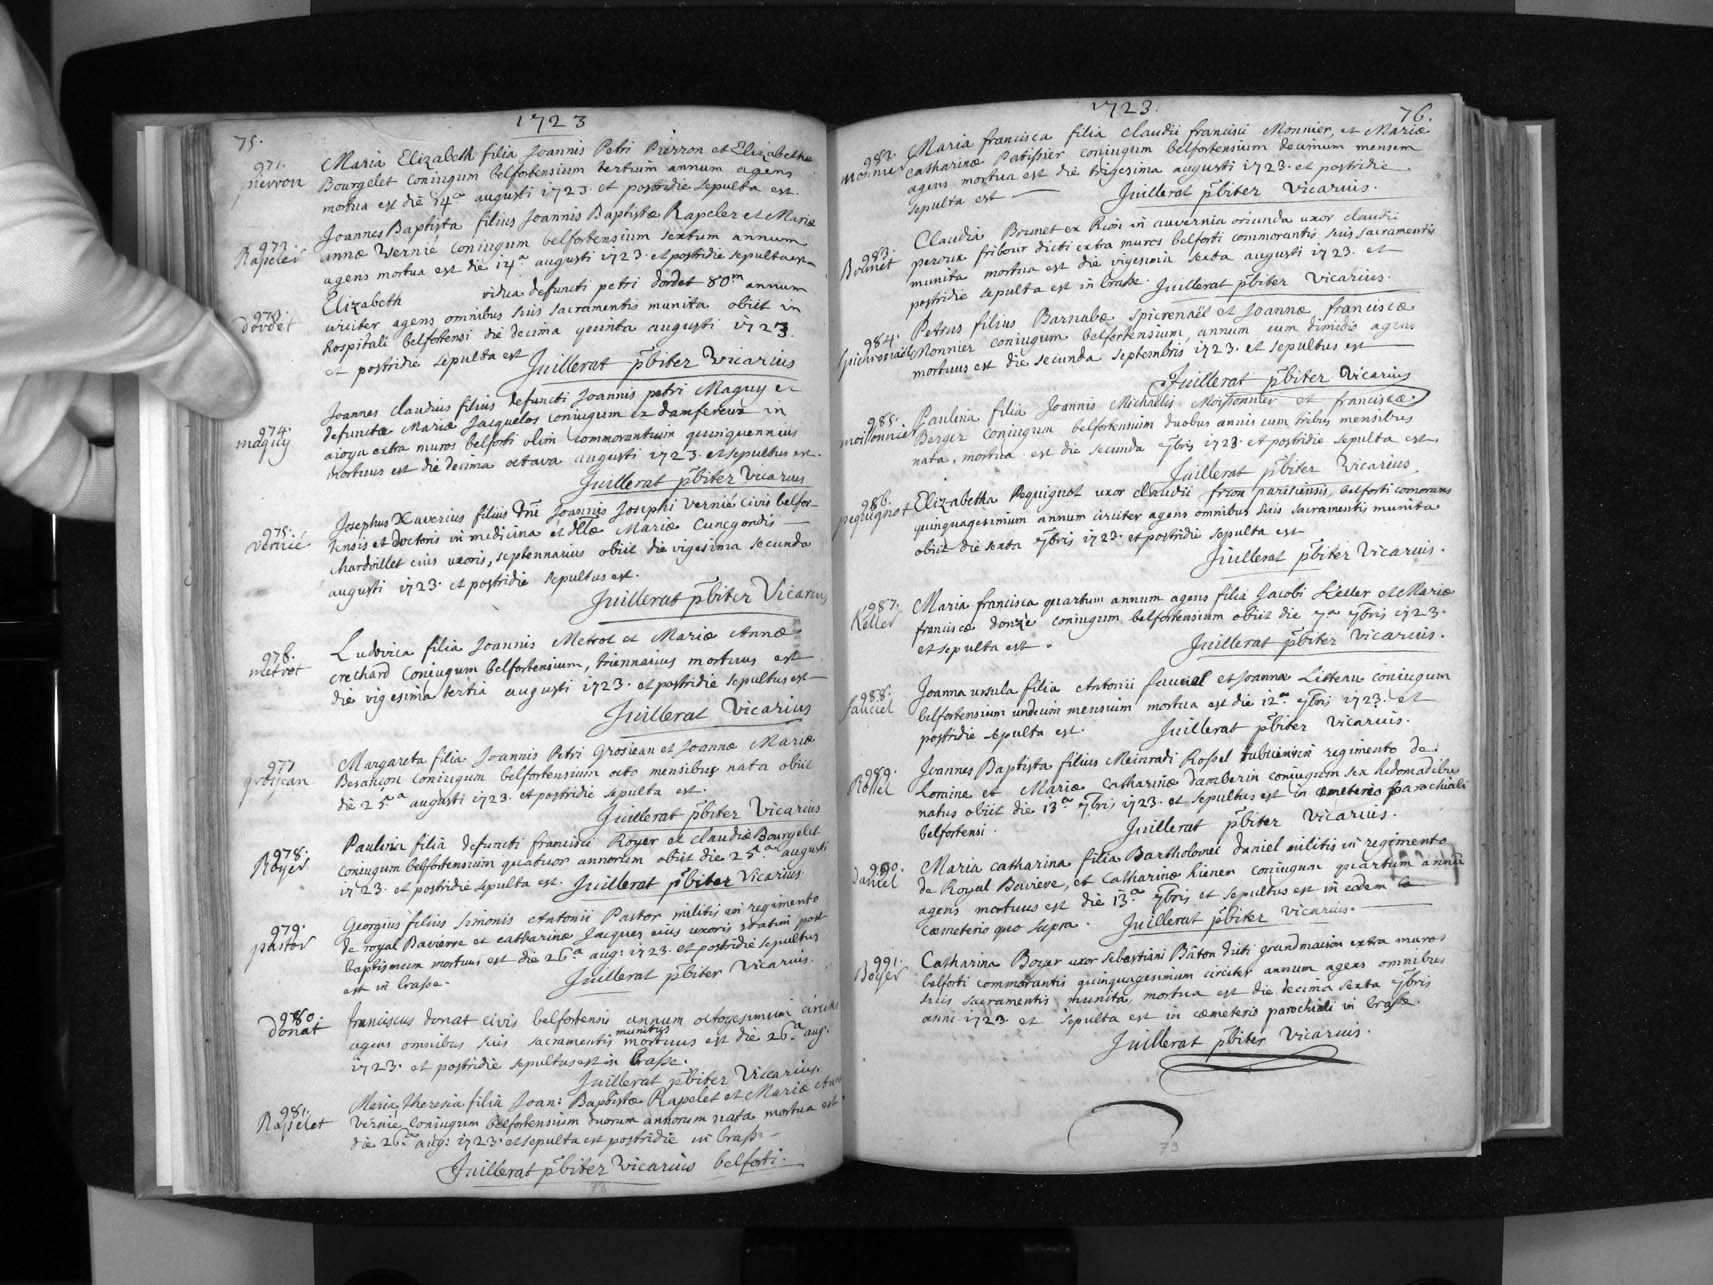 1723
75.
971.
pierron
Maria Elizabeth filia Joannis Petri Pierron et Elizabethæ
Bourgelet coniugum belfortensium tertium annum agens
mortua est die 14a augusti 1723. et postridie sepulta est.
972.
Rapeler
Joannes Baptista filius Joannis Baptistæ Rapeler et Mariæ
annæ Vernié coniugum belfortensium sextum annum
agens mortua est die 14a augusti 1723. et postridie sepulta est
973.
dordet
Elizabeth vidua defuncti petri dordet 80m annum
circiter agens omnibus suis sacramentis munita obiit in
hospitali belfortensi die decima quinta augusti 1723.
et postridie sepulta est Juillerat pbiter Vicarius
974.
maguy
Joannes claudius filius defuncti Joannis petri Maguy et
defunctæ Mariæ Jacquelos coniugum ex damfereux in
aioya extra muros belforti olim commorantium quinquennius
mortuus est die decima octava augusti 1723. et sepultus est.
Juillerat pbiter Vicarius
975.
vernié
Josephus Xaverius filius Dni Joannis Josephi Vernié civis belfor-
tensis et doctoris in medicina et dllæ Mariæ Cunegondis
chardoillet eius uxoris, septennarius obiit die vigesima secunda
augusti 1723. et postridie sepultus est.
Juillerat pbiter Vicarius
976.
metrot
Ludovica filia Joannis Metrot et Mariæ Annæ
crechard Coniugum belfortensium, triennaius mortuus est
die vigesima tertia augusti 1723. et postridie sepultus est
Juillerat Vicarius
977
grosjean
Margareta filia Joannis Petri Grosiean et Joannæ Mariæ
Besançon coniugum belfortensium octo mensibus nata obiit
die 25.a augusti 1723. et postridie sepulta est.
Juillerat pbiter Vicarius
978.
Royer
Paulina filia defuncti francisci Royer et claudiæ Bourgelet
coniugum belfortensium quatuor annorum obiit die 25.a augusti
1723. et postridie sepulta est. Juillerat pbiter Vicarius.
979.
pastor
Georgius filius Simonis Antonii Pastor militis in regimento
de royal Bavierre et catharinæ Jacques eius uxoris statim post
baptismum mortuus est die 26a aug: 1723. et postridie sepultus
est in brasse.
Juillerat pbiter Vicarius.
980.
Donat
franciscus donat civis belfortensis annum octogesimum circiter
agens omnibus suis sacramentis munitus mortuus est die 26.a aug.
1723. et postridie sepultus est in brasse.
Juillerat pbiter Viccarius.
981.
Rapelet
Maria Theresia filia Joan: Baptistæ Rapelet et Mariæ Annæ
Vernié coniugum belfortensium duorum annorum nata mortua est
die 26.a aug: 1723. et sepulta est postridie in brass-
Juillerat pbiter Vicarius belforti.
73
1723.
76.
982.
monnier
Maria francisca filia claudii francisci Monnier, et Mariæ
catharinæ Patissier coniugum belfortensium decimum mensem
agens mortua est die trigesima augusti 1723. et postridie
sepulta est Juillerat pbiter Vicarius.
983.
Brunet
Claudia Brunet ex Rion in auvernia oriunda uxor claudii
peroux fribour dicti extra muros belforti commorantis suis sacramentis
munita mortua est die vigesima sexta augusti 1723. et
postridie sepulta est in brasse. Juillerat pbiter Vicarius.
984.
Petrus filius Barnabæ Spicrenaël et Joannæ franciscæ
Monnier coniugum belfortensium, annum cum dimidio agens
mortuus est die secunda septembris 1723. et sepultus est
Juillerat pbiter Vicarius
985.
moissonnier
Paulina filia Joannis Michaelis Moissonnier et franciscæ
Berger coniugum belfortensium duobus annis cum tribus mensibus
nata, mortua est die secunda 7bris 1723. et postridie sepulta est.
Juillerat pbiter Vicarius
986.
pequignot
Elizabetha Pequignot uxor claudii frion parisiensis, belforti comorans
quinquagesimum annum circiter agens omnibus suis sacramentis munita
obiit die sexta 7bris 1723. et postridie sepulta est
Juillerat pbiter Vicarius.
987.
Keller
Maria francisca quartum annum agens filia Jacobi Keller et Mariæ
franciscæ donzé coniugum belfortensium obiit die 7a 7bris 1723.
et sepulta est. Juillerat pbiter Vicarius.
988.
fauciel
Joanna ursula filia Antonii fauciel et Joannæ Litteau coniugum
belfortensium undecim mensium mortua est die 12a 7bris 1723. et
postridie sepulta est Juillerat pbiter Vicarius.
989.
Rossel
Joannes Baptista filius Meinradi Rossel regimento de
Loraine et Mariæ Catharinæ damberin coniugum sex hedomadibus
natus obiit die 13a 7bris 1723. et sepultus est in cæmeterio parochiali
belfortensi. Juillerat pbiter Vicarius.
990.
daniel
Maria catharina filia Bartholomei daniel militis in regimento
de Royal Baviere, et Catharinæ hienen coniugum quartum annum
agens mortuus est die 13.a 7bris et sepultus est in eodem
cæmeterio quo supra. Juillerat pbiter Vicarius.
991.
Boyer
Catharina Boyer uxor sebastiani Bâton dicti grandmaison extra muros
belforti commorantis quinquagesimum circiter annum agens omnibus
suis sacramentis munita, mortua est die decima sexta 7bris
anni 1723. et sepulta est in cæmeterio parochiali in brasse.
Juillerat pbiter Vicarius.
79